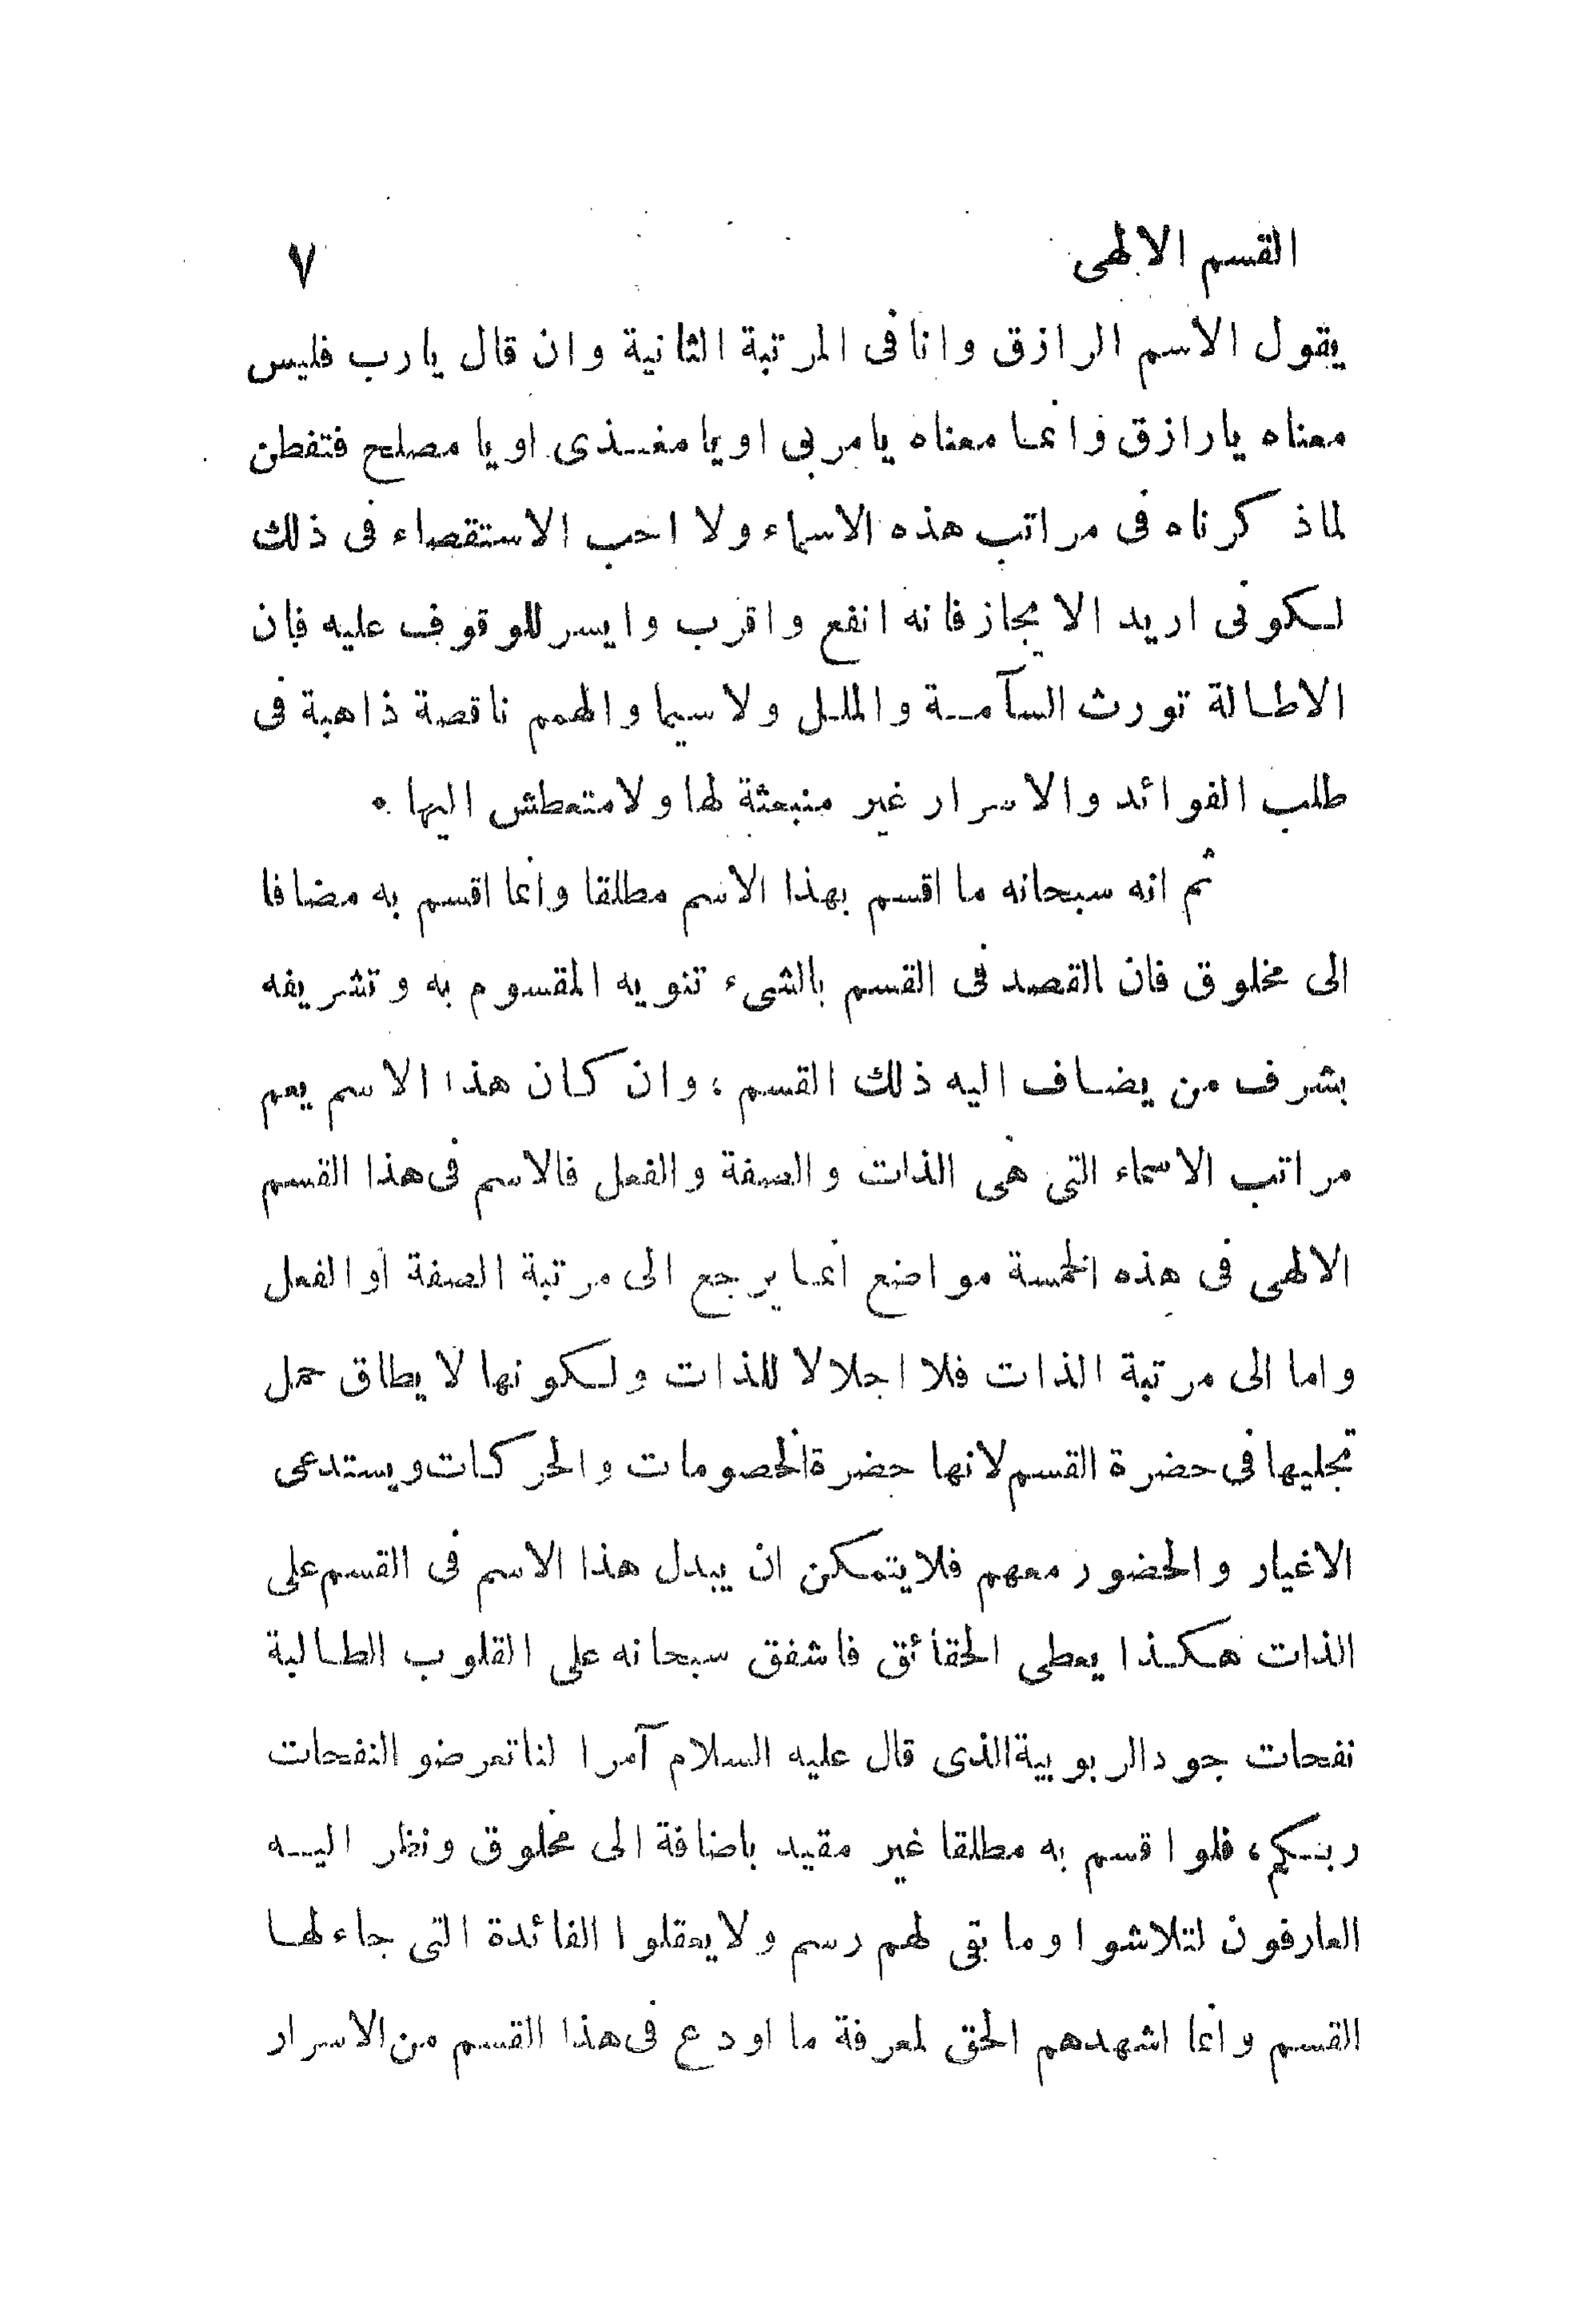 القسم الالهى ٧
يقول الاسم الرازق وانا فى المرتبة الثانية وان قال يارب فليس
معناه يارازق وانمـا معناه يامربى او يا مغــذى او يا مصلح فتفطن
لماذ كرناه فى مراتب هذه الاسماء ولا احب الاستقصاء فى ذلك
لـكونى اريد الايجاز فانه انفع واقرب وايسر للوقوف عليه فان
الاطـالة تورث السآمــة والملـل ولاسيما والهمم ناقصة ذاهبة فى
طلب الفوائد والاسرار غير منبعثة لها ولامتعطش اليها .
ثم انه سبحانه ما اقسم بهذا الاسم مطلقا وانما اقسم به مضافا
الى مخلوق فان القصد فى القسم بالشىء تنويه المقسوم به وتشريفه
بشرف من يضـاف اليه ذلك القسم ؛ وان كان هذا الاسم يعم
مراتب الاسماء التى هى الذات والصفة والفعل فالاسم فى هذا القسم
الالهى فى هذه الخمسة مواضع انمـا يرجع الى مرتبة الصفة او الفعل
واما الى مرتبة الذات فلا اجلالا للذات ولـكونها لايطاق حمل
تجليها فى حضرة القسم لانها حضرة الخصومات والحركات ويستدعى
الاغيار والحضور معهم فلايتمـكن ان يبدل هذا الاسم فى القسم على
الذات هـكـذا يعطى الحقائق فاشفق سبحانه على القلوب الطـالبة
نفحات جود الربوبية الذى قال عليه السلام آمرا لنا تعرضو النفحات
ربـكم، فلو اقسم به مطلقا غير مقيد باضافة الى مخلوق ونظر اليــه
العارفون لتلاشوا وما بقى لهم رسم ولايعقلوا الفائدة التى جاء لهـا
القسم وانما اشهدهم الحق لمعرفة ما اودع فى هذا القسم من الاسرار